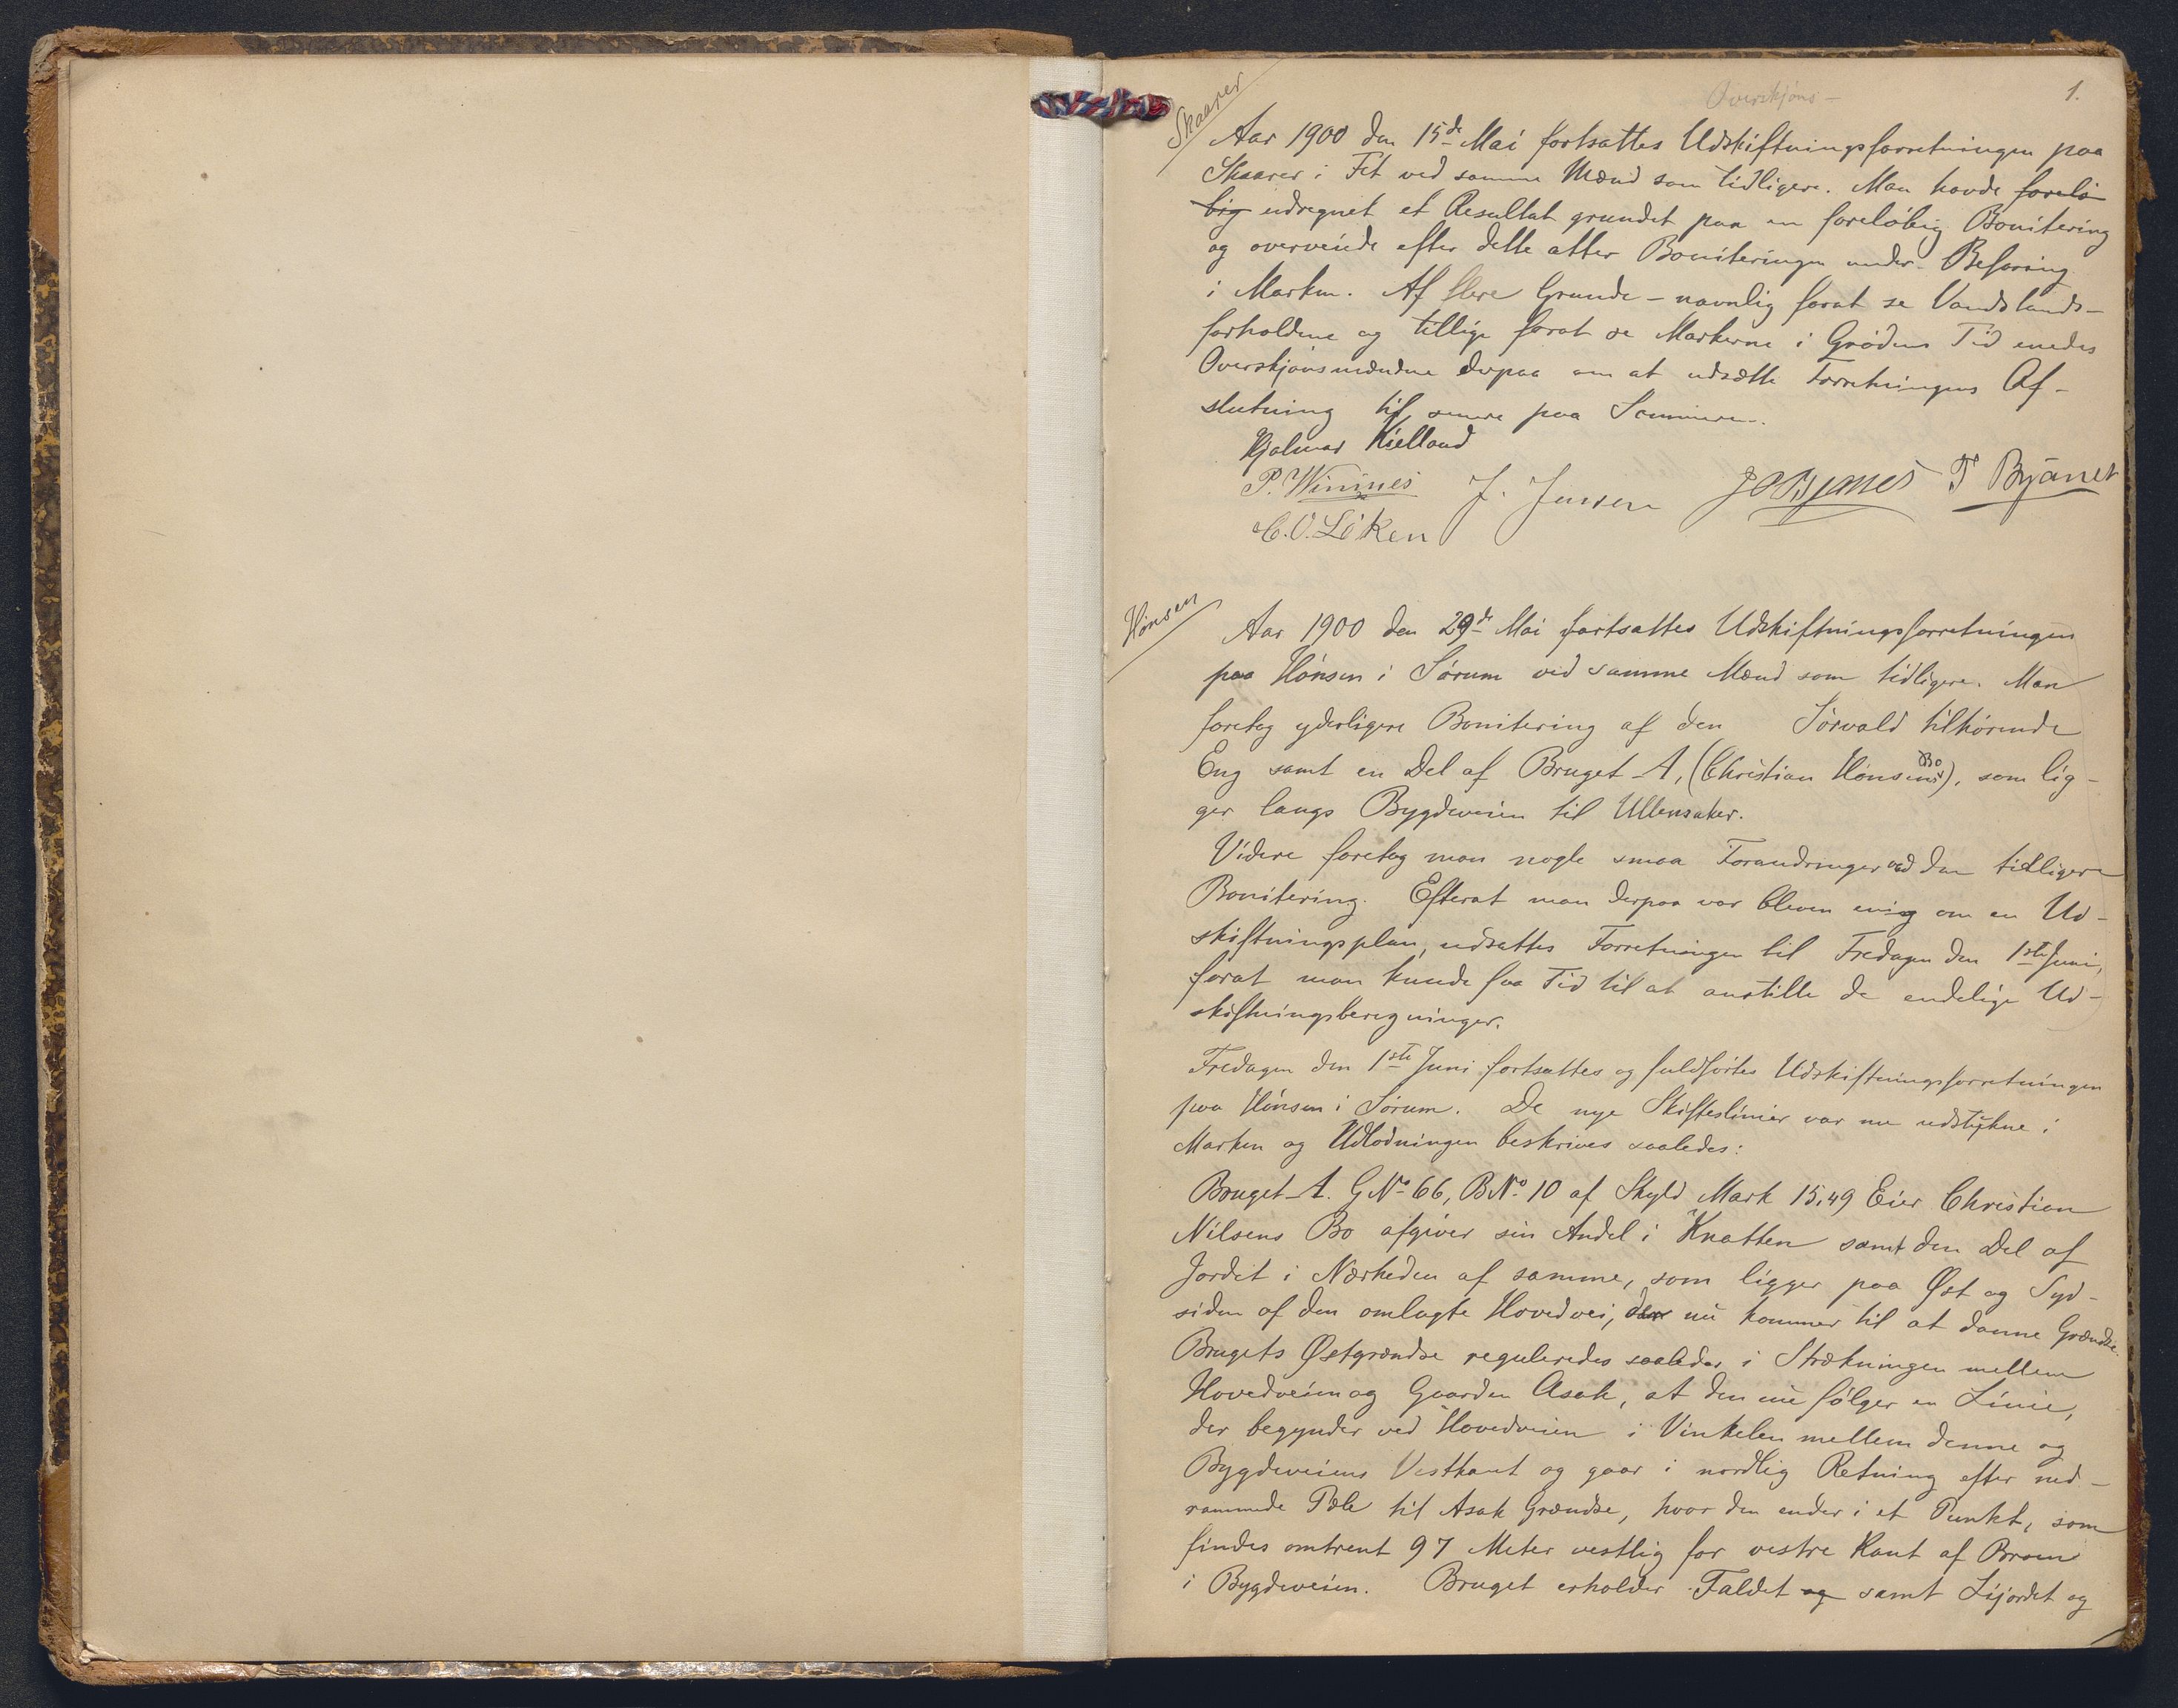 Overskjøns-
1.
Skaarer
Aar 1900 den 15de Mai fortsattes Udskiftningsforretningen paa
Skaarer i Fet ved samme Mænd som tidligere. Man havde forelø-
big udregnet et Resultat grundet paa en foreløbig Bonitering
og overveiede efter dette atter Boniteringen under Befaring
i Marken. Af flere Grunde - navnlig forat se Vandstands-
forholdene og tillige forat se Markerne i Grødens Tid enedes
Overskjønsmændene derpaa om at udsætte Forretningens Af-
slutning til senere paa Sommeren.
Hjalmar Kielland
P. Winines J. Jensen T Bjanes
C. O. Løken
Hønsen
Aar 1900 den 29de Mai fortsattes Udskiftningsforretningen
paa Hønsen i Sørum ved samme Mænd som tidligere. Man
foretog yderligere Bonitering af den Sørvald tilhørende
Eng samt en Del af Bruget A, (Christian Hønsens Bo), som lig-
ger langs Bygdeveien til Ullensaker.
Videre foretog man nogle smaa Forandringer ved den tidligere
Bonitering. Efterat man derpaa var bleven enig om en Ud-
skiftningsplan, udsattes Forretningen til Fredagen den 1ste Juni,
forat man kunde faa Tid til at anstille de endelige Ud-
skiftningsberegninger.
Fredagen den 1ste Juni fortsattes og fuldførtes Udskiftningsforretningen
paa Hønsen i Sørum. De nye Skifteslinier var nu udstukne i
Marken og Udlodningen beskrives saaledes:
Bruget A. G No 66, B No 10 af Skyld Mark 15,49 Eier Christian
Nilsens Bo afgiver sin Andel i Knatten samt den Del af
Jordet i Nærheden af samme, som ligger paa Øst og Syd-
siden af den omlagte Hovedvei, der nu kommer til at danne Grændse.
Brugets Østgrændse reguleredes saaledes i Strækningen mellem
Hovedveien og Gaarden Asak, at den nu følger en Linie,
der begynder ved Hovedveien i Vinkelen mellem denne og
Bygdeveiens Vestkant og gaar i nordlig Retning efter ned-
rammede Pæle til Asak Grændse, hvor den ender i et Punkt, som
findes omtrent 97 Meter vestlig for vestre Kant af Broen
i Bygdeveien. Bruget erholder Faldet og samt Lijordet og